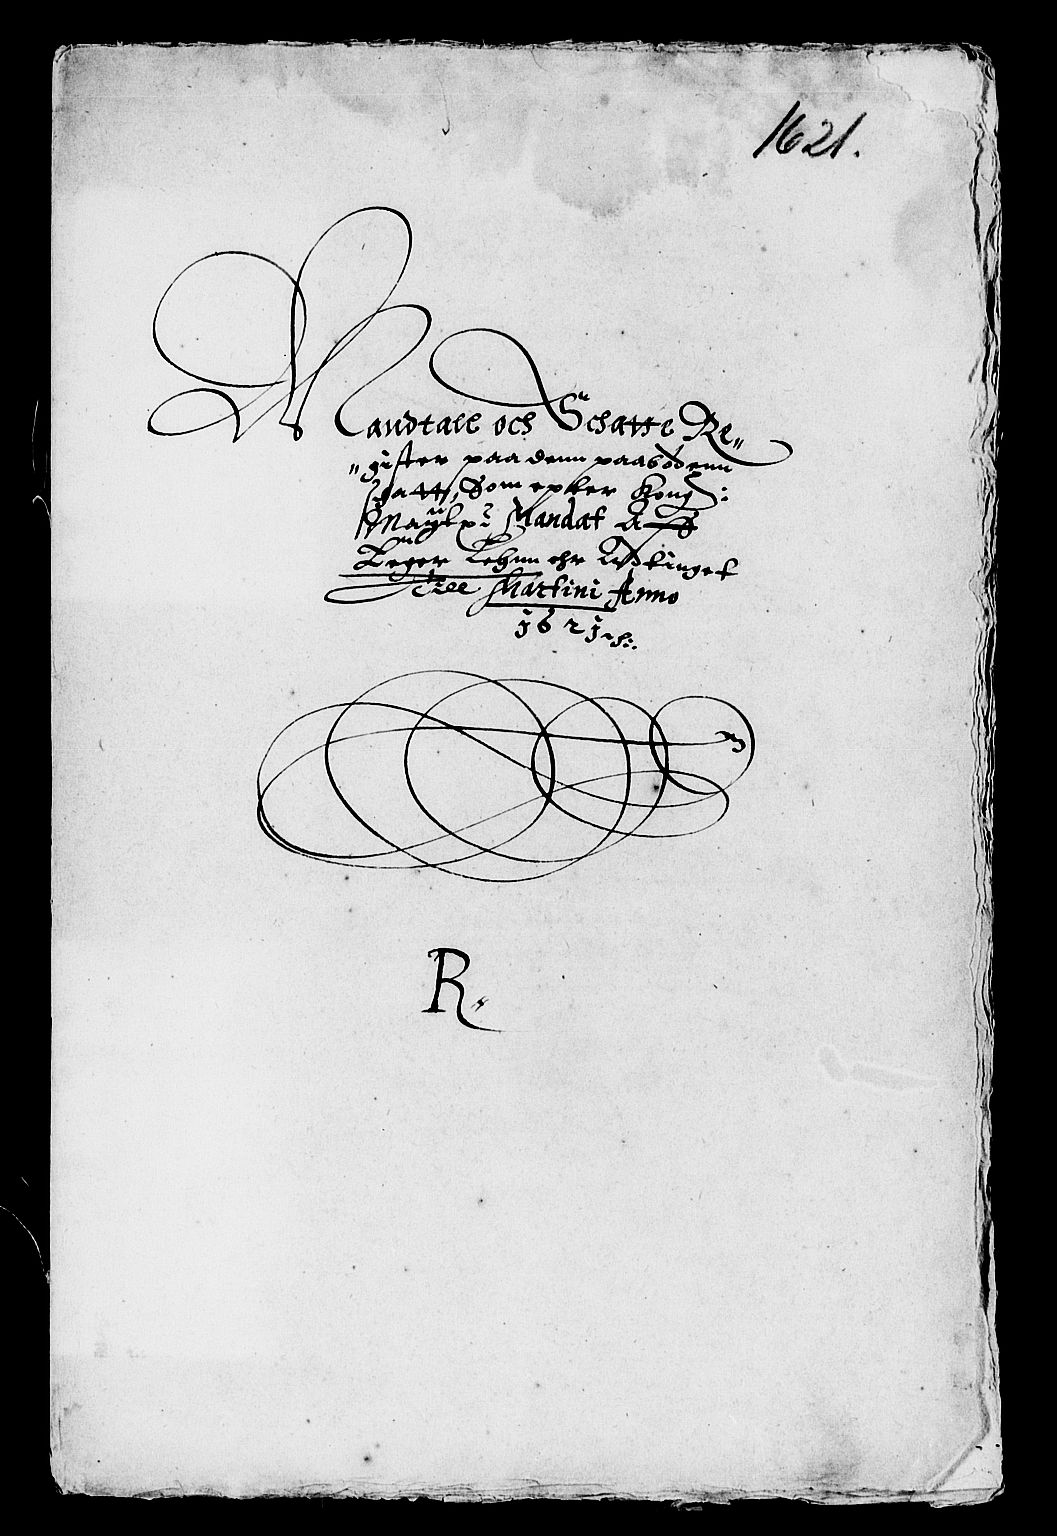 1621.
Mandtall och Schatte Re„
„gister paa denn paabödenn
Schatt, Som epter Kong:
Maÿts: Mandat Aff
Lehnn ehr Udtinget
till Martini Anno
1621
R.